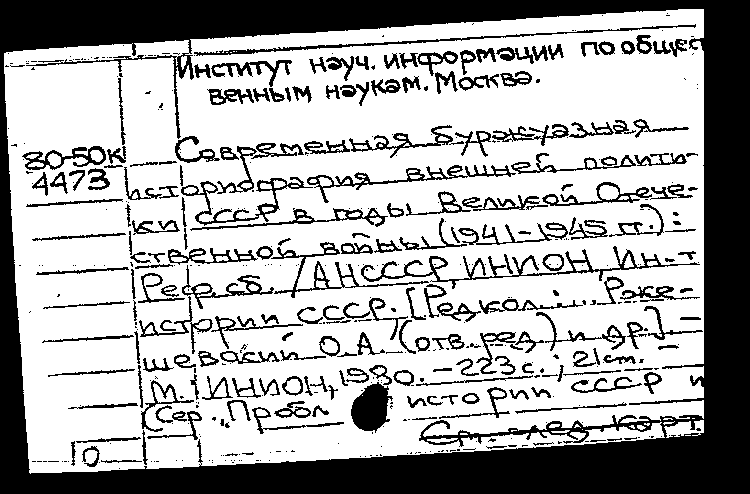 Институт науч. информации по общест
венным наукам. Москва.
80-50к
4473
Современная буржуазная
историография внешней полити-
ки СССР в годы Великой Отече-
ственной войны (1941-1945 гг.):
Реф. сб. / АН СССР, ИНИОН, Ин-т
истории СССР. [Редкол.: ... Рже-
шевский О.А. (отв. ред.) и др.]. -
М.: ИНИОН, 1980. - 223 с.; 21 см. -
(Сер. "Пробл истории СССР и
См. след. карт.
0